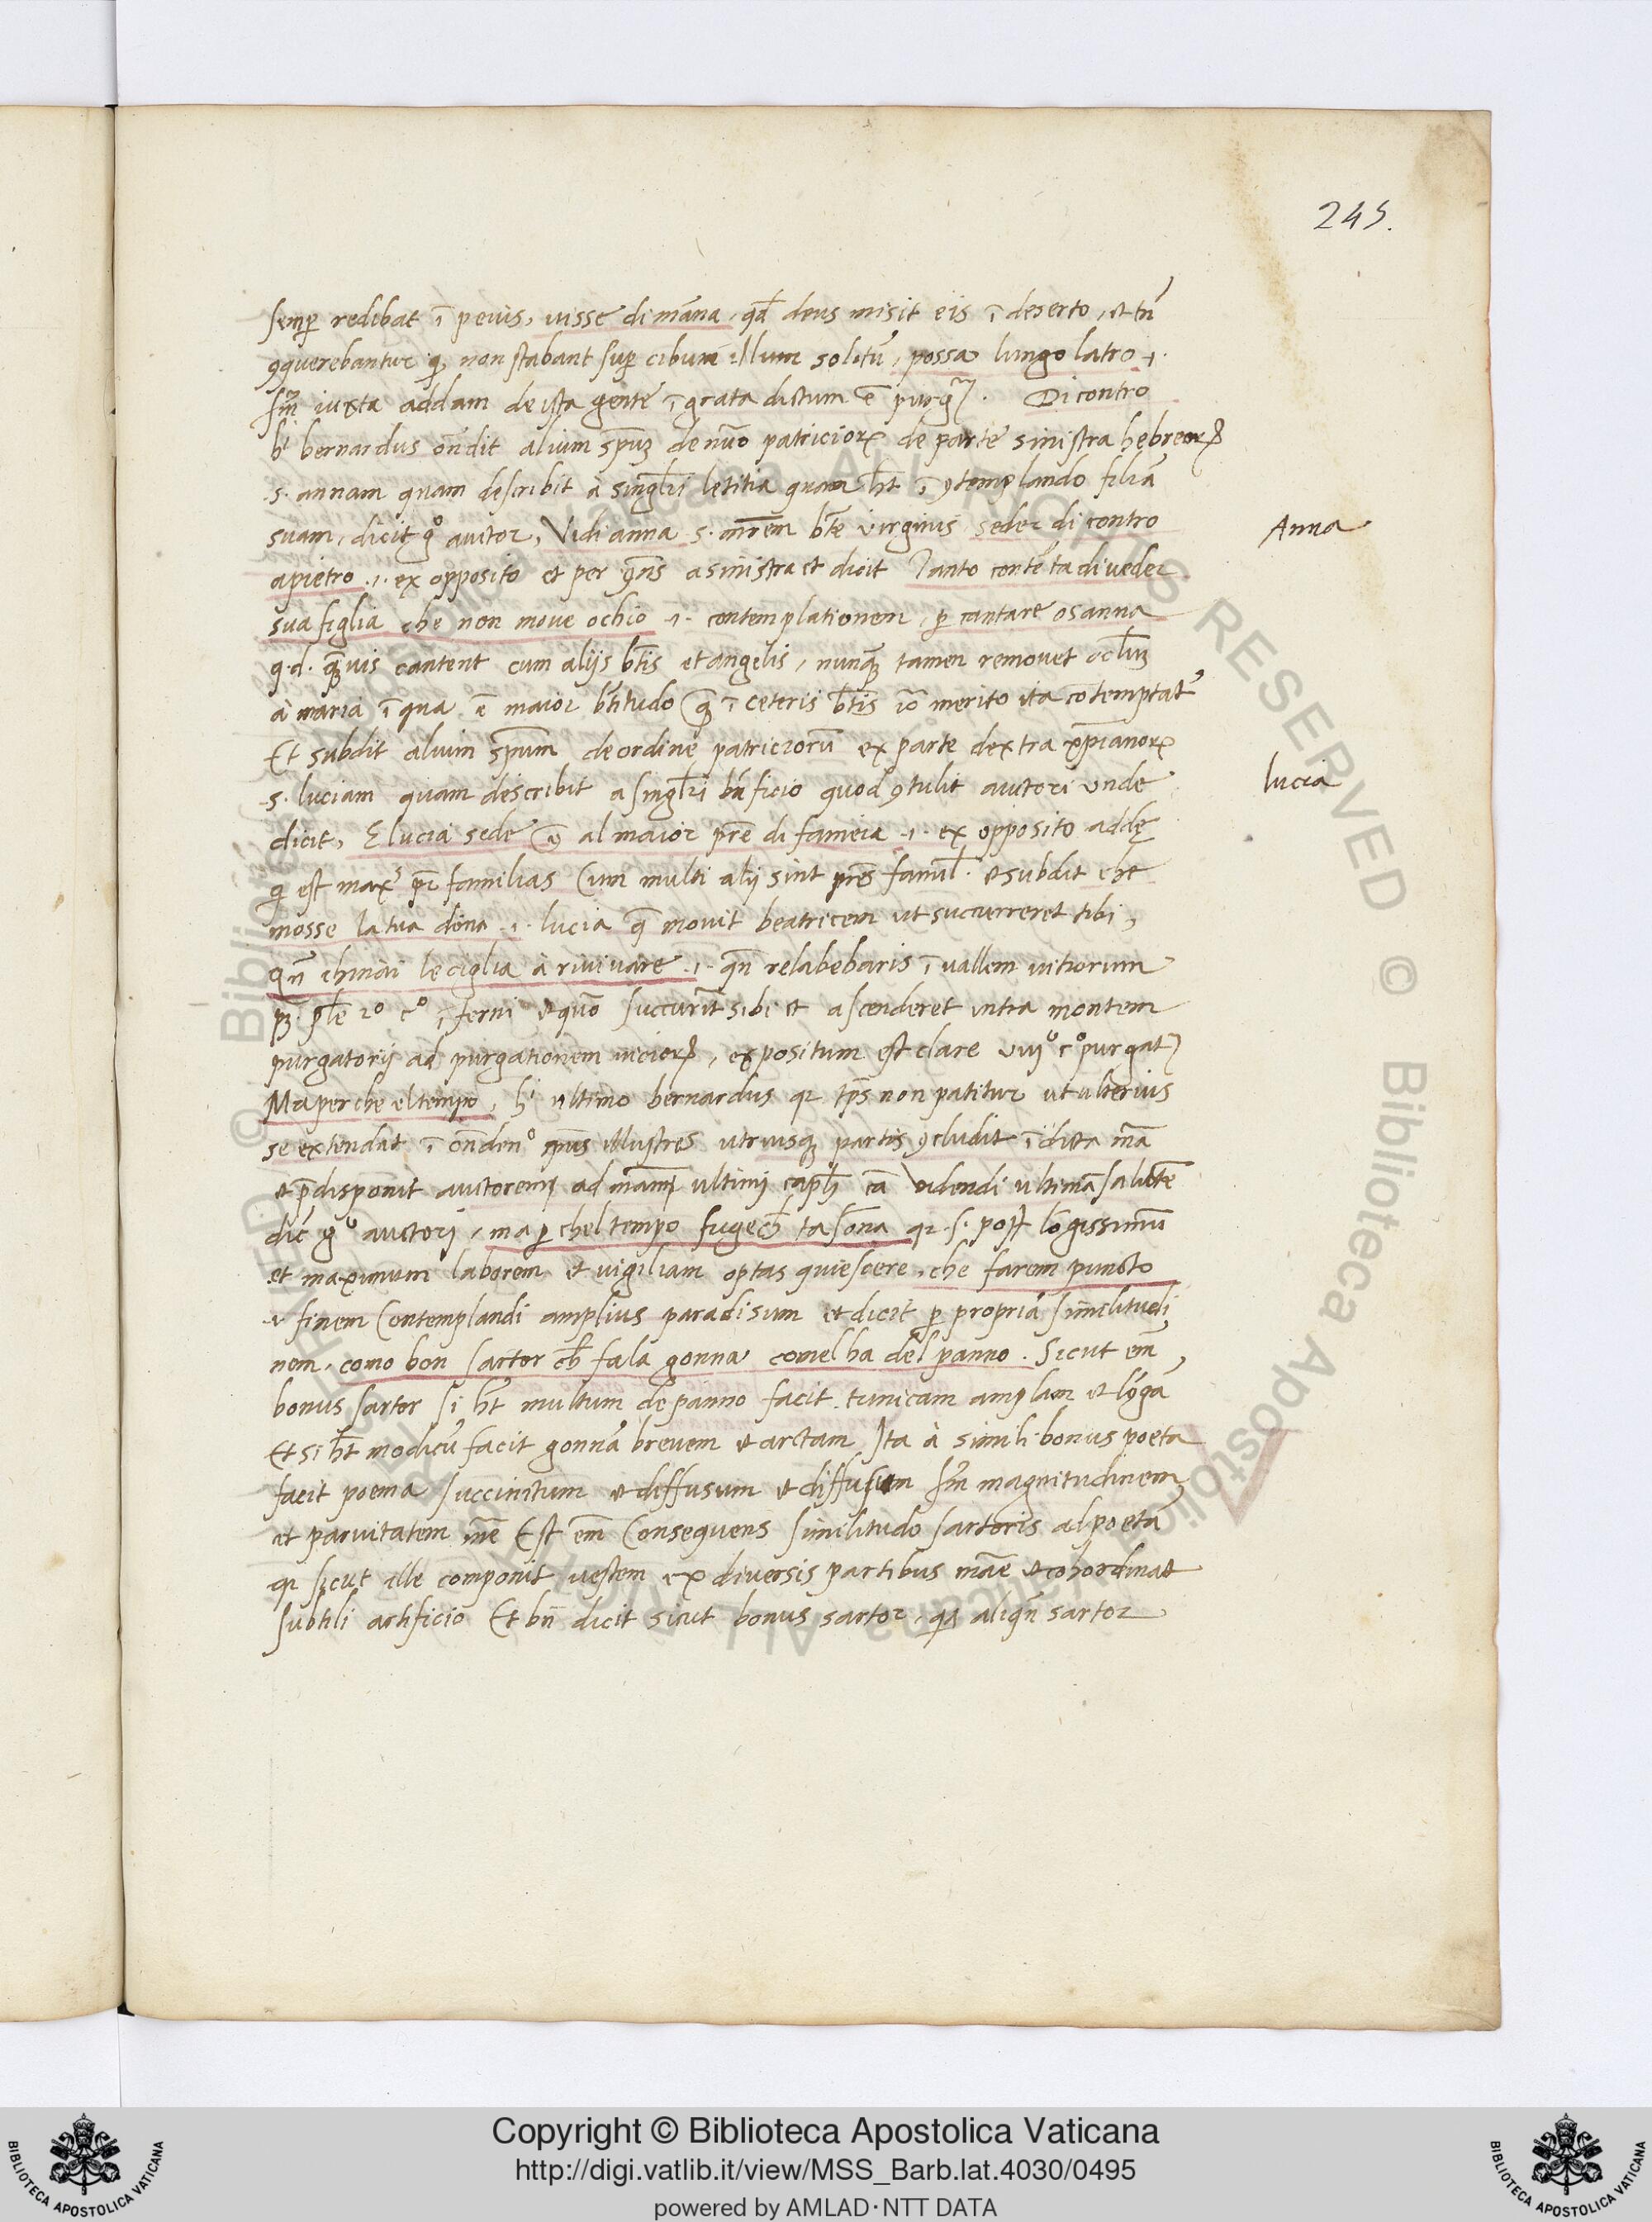 245.
semp̄ redibat ī peius, uisse di māna, qđ deus misit eis ī deserto, et tñ
ꝯquerebantur qꝫ non stabant sup̄ cibum illum solitū, possa lungo latro .i.
iuxta addam de ista gente īgrata dictum ē purgꝫ. Di contro
bernardus oñdit alium sp̄uꝫ de nuō patricioꝝ de parte sinistra hebreoꝝ
.s. annam quam describit à singłri letitia quam ht̄ ī ꝯtemplando filiā
suam, dicit gº auctor, Vidi anna .s. mr̄em bt̄e virginis seder di contro
Anna
a pietro .i. ex opposito et per ꝯñs a sinistra et dicit Tanto contēta di veder
sua figlia che non move ochio .i. contemplationem, p̱ cantare osanna
q.d. qꝫuis cantent cum alijs bt̄is et angelis, nunqꝫ tamen remouet ocłuꝫ
à maria ī qua ē maior bt̄itudo qꝫ ī ceteris bt̄is iō merito ita contemptat͛
Et subdit alium sp̄um de ordine patriciorū ex parte dextra xp̄ianoꝝ
.s. luciam quam describit a singłri bñficio quod ꝯtulit auctori unde
lucia
dicit, E lucia sede ꝯ al maior pr̄e di fameia .i. ex opposito adde
q est max͛ pr̄ familias Cum multi alij sint pr̄es famil. et subdit che
mosse la tua dōna .i. lucia q̄ mouit beatricem ut succurreret tibi,
qñ chinai le ciglia à rivivare .i. qñ relabebaris ī uallem uitiorum
2º cº īferni et quō succurit sibi et ascenderet intra montem
purgatorij ad purgationem uicioꝝ, expositum est clare viiijº cº purgatꝫ
Ma perche el tempo, hⁱ ultimo bernardus qꝛ tp̄s non patitur ut ulterius
se extendat ī oñdenº sp̄us illustres utriusqꝫ partis ꝯcludit ī dicta mā
et p̄disponit auctorem ad mām ultimi capłi cā uidendi ultimā salutē
dic̄ gº auctori, ma p̱ chel tempo fuge cħ tasona qꝛ .s. post lōgissimū
et maximum laborem et uigiliam optas quiescere, che farem puncto
.i. finem Contemplandi amplius paradisum et dicit p̱ propriā similitudi
nem, como bon sartor cħ fa la gonna comel ha del panno. Sicut eñi
bonus sartor si ht̄ multum de panno facit tunicam amplam et lōgā
Et si ht̄ modicū facit gonnā brevem et arctam Ita à simili bonus poeta
facit poema succinctum et diffusum et diffusum sm̄ magnitudinem
et paruitatem mē Est em̄ Consequens similitudo sartoris al poetā
qꝛ sicut ille componit uestem ex diuersis partibus māe et cohordinat
subtili artificio Et bñ dicit sicut bonus sartor, qꝛ aliqñ sartor
Copyright © Biblioteca Apostolica Vaticana
http://digi.vatlib.it/view/MSS_Barb.lat.4030/0495
powered by AMLAD·NTT DATA